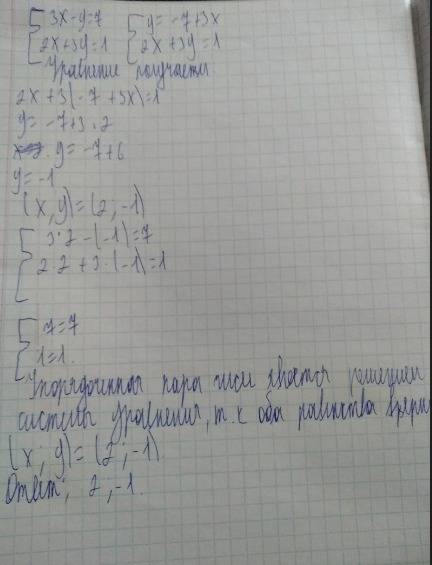 {3x-y=7 {y=-7+3x
{2x+3y=1 {2x+3y=1
Уравнение получается
2x+3(-7+3x)=1
y=-7+3·2
y=-7+6
y=-1
(x,y)=(2;-1)
{3·2-(-1)=7
{2·2+3·(-1)=1
{7=7
{1=1.
Упорядоченная пара чисел является решением
системы уравнения, т.к оба равенства верны
(x;y)=(2;-1)
Ответ; 2,-1.